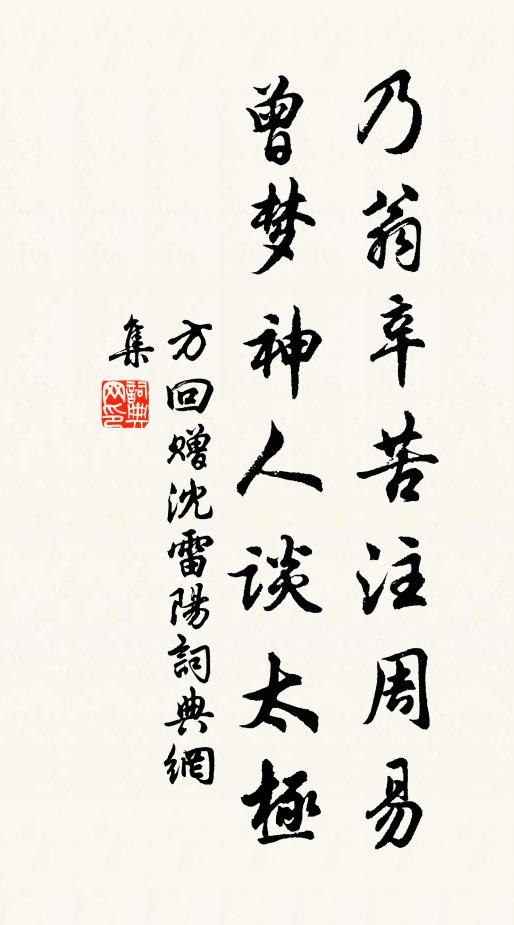 乃翁辛苦注周易
曾梦神人谈太極
方回赠沈雷陽詞典網
集
詞典網印